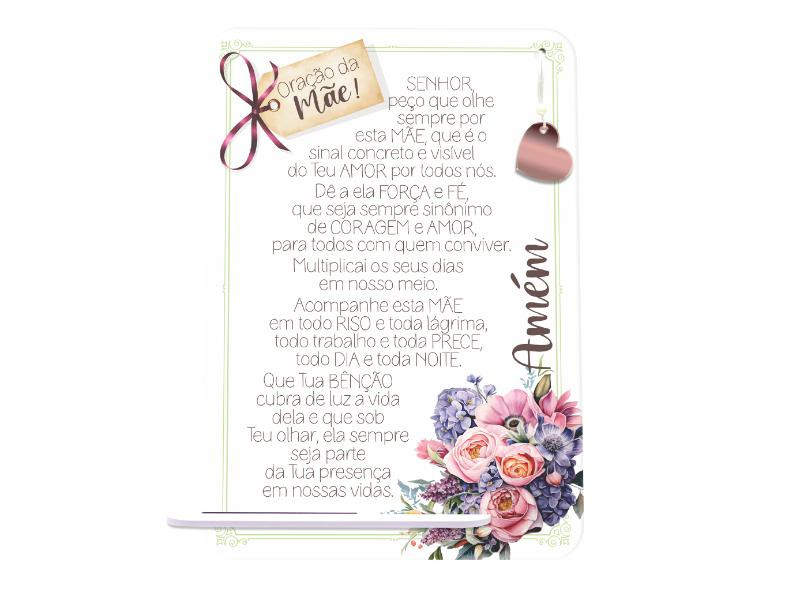 Oração da
Mãe!
SENHOR,
peço que olhe
sempre por
esta MÃE, que é o
sinal concreto e visível
do Teu AMOR por todos nós.
Dê a ela FORÇA e FÉ,
que seja sempre sinônimo
de CORAGEM e AMOR,
para todos com quem conviver.
Multiplicai os seus dias
em nosso meio.
Acompanhe esta MÃE
em todo RISO e toda lágrima,
todo trabalho e toda PRECE,
todo DIA e toda NOITE.
Que Tua BÊNÇÃO
cubra de luz a vida
dela e que sob
Teu olhar, ela sempre
seja parte
da Tua presença
em nossas vidas.
Amém